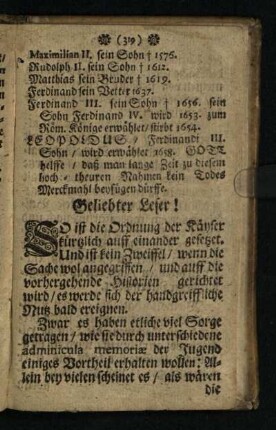 (319)
Maximilian II. sein Sohn † 1576.
Rudolph II. sein Sohn † 1612.
Matthias sein Bruder † 1619.
Ferdinand sein Vetter 1637.
Ferdinand III. sein Sohn † 1656. sein
Sohn Ferdinand IV. wird 1653. zum
Röm. Könige erwählet / stirbt 1654.
LEOPOLDUS, Ferdinandi III.
Sohn / wird erwählet 1658. GOTT
helffe / daß man lange Zeit zu diesem
hoch-theuren Nahmen kein Todes
Merckmahl beyfügen dürffe.
Geliebter Leser!
SO ist die Ordnung der Käyser
kürtzlich auff einander gesetzet.
Und ist kein Zweiffel / wenn die
Sache wol angegriffen / und auff die
vorhergehende Historien gerichtet
wird / es werde sich der handgreiffliche
Nutz bald ereignen.
Zwar es haben etliche viel Sorge
getragen / wie sie durch unterschiedene
adminicula memoriæ der Jugend
einiges Vortheil erhalten wollen: Al-
lein bey vielen scheinet es / als wären
die